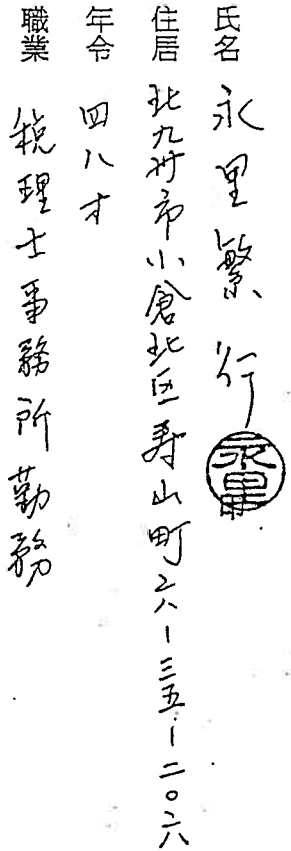 氏名 永里繁行 永里
住居 北九州市小倉北区寿山町二六ー三五ー二〇六
年令 四八才
職業 税理士事務所勤務